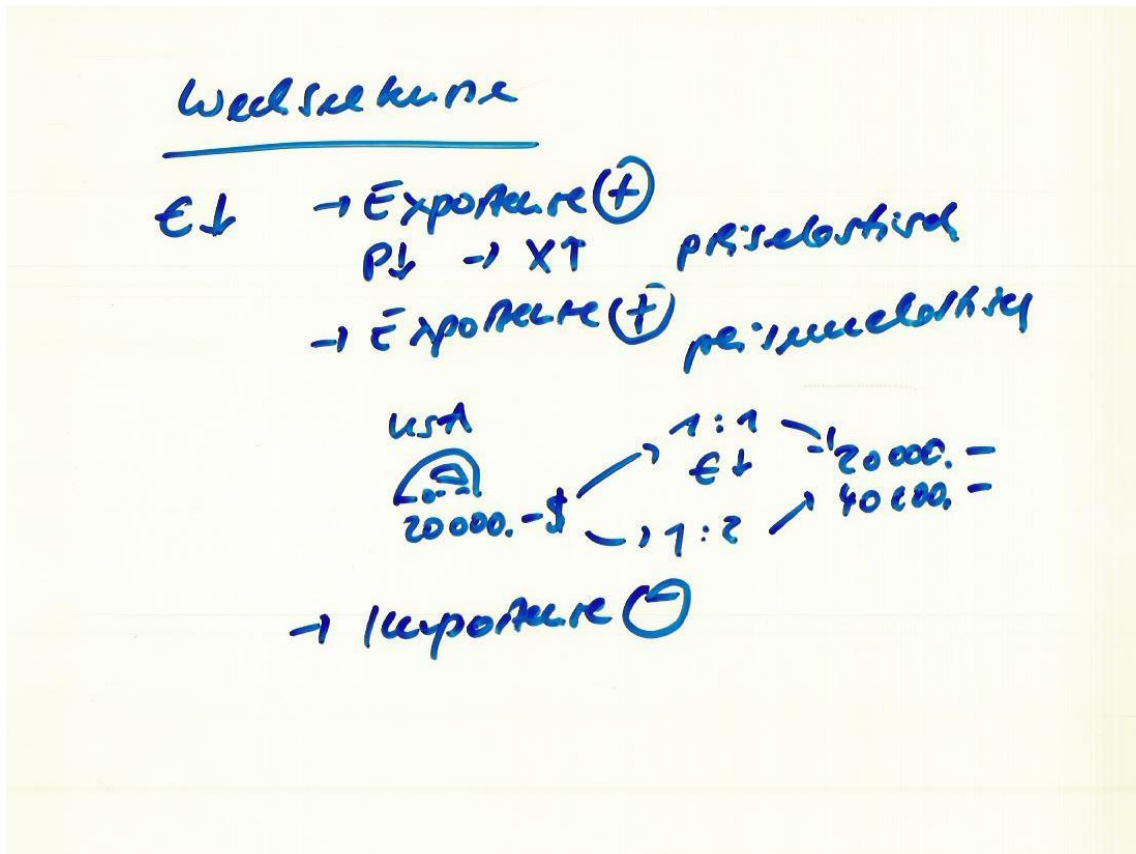 Wechselkurse
€↓ → Exporteure (+)
P↓ → X↑ preiselastisch
→ Exporteure (+) preisunelastisch
USA 1:1
€↓ 20000.-
20000.-$ 1:2 40000.-
→ Importeure (-)